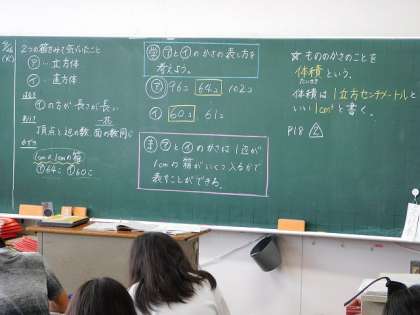 2つの箱をみて気づいたこと
㋐…立方体
㋑…直方体
㋑の方が長さが長い
頂点と辺の数、面の数同じ
1cmの1cmの箱
㋐64こ ㋑60こ
㋐と㋑のかさの表し方を
考えよう。
㋐ 96こ 64こ 102こ
㋑ 60こ 61こ
㋐と㋑のかさは1辺が
1cmの箱がいくつ入るかで
表すことができる。
☆もののかさのことを
体積という。
たいせき
体積は1立方センチメートルと
いい1cm³と書く。
P18 ②